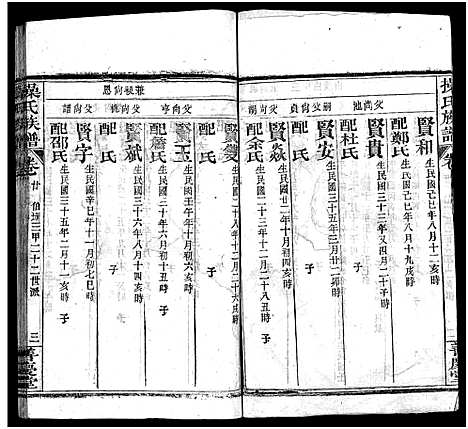 操氏族譜
卷
賢和 生民國己巳年八月十二亥時
配鄭氏 生民國己巳年八月十九戌時
父尚池
賢貴 生民國三十三年又四月二十子時
配杜氏 子
嗣父尚貞
賢安 生民國三十五年三月廿二卯時
配 子
父尚朝
賢焱 生民國廿二年十月初四寅時
配余氏 生民國二十八年十二月二十八丑時
兼祧尚恩
賢旻 生民國二十八年十二月二十六戌時
配 子
父尚亨
賢玉 生民國壬午年十月十一子時
配詹氏 生民國三十五年十月初十丑時
賢斌 生民國三十六年八月十四亥時
配 子
賢字 生民國辛巳年十一月初七巳時
配邵氏 生民國三十五年二月十一亥時
子
操氏族譜
卷廿
三甲二十二世派
三
善慶堂